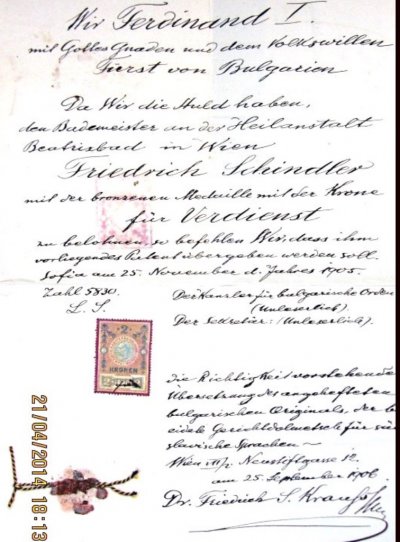 Wir Ferdinand I.
mit Gottes Gnaden und dem Volkswillen
Fürst von Bulgarien
Da Wir die Huld haben,
den Bademeister an der Heilanstalt
Beatrixbad in Wien
Friedrich Schindler
mit der bronzenen Medaille mit der Krone
für Verdienst
zu belohnen, so befehlen Wir, dass ihm
vorliegendes Patent übergeben werden soll.
Sofia am 25. November d. Jahres 1905.
Zahl 5830.
L. S.
Der Kanzler für bulgarische Orden
(Unleserlich).
Der Sekretär: (Unleserlich).
2
KRONEN
die Richtigkeit vorstehender
Übersetzung des angehefteten
bulgarischen Originals, der be
eidete Gerichtsdolmetsch für süd
slavische Sprachen
Wien VII/2 Neustiftgasse 12
am 25. September 1906
Dr. Friedrich S. Krauss
21/04/2014 18:13